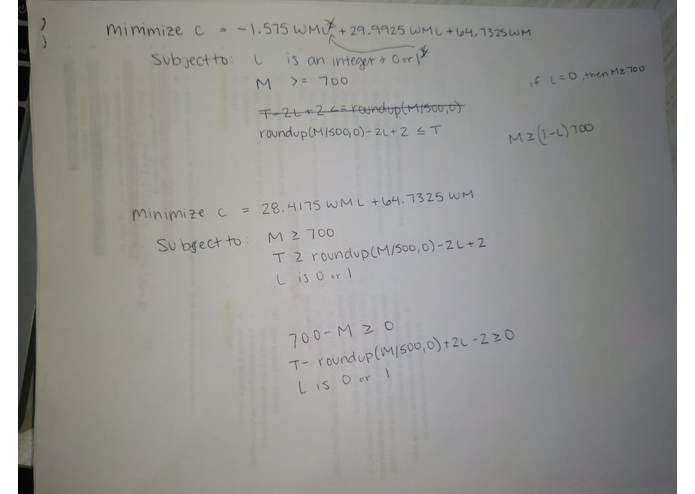 minimize c = -1.575 WML² + 29.9925 WML + 64.7325WM
Subject to: L is an integer & 0 or 1
M >= 700
if L=0, then M≥700
T-2L+2 <= roundup(M/500,0)
roundup(M/500,0)-2L+2 ≤ T
M≥(1-L)700
Minimize c = 28.4175 WML + 64.7325 WM
Subject to: M ≥ 700
T ≥ roundup(M/500,0)-2L+2
L is 0 or 1
700-M ≥ 0
T- roundup(M/500,0)+2L-2≥0
L is 0 or 1